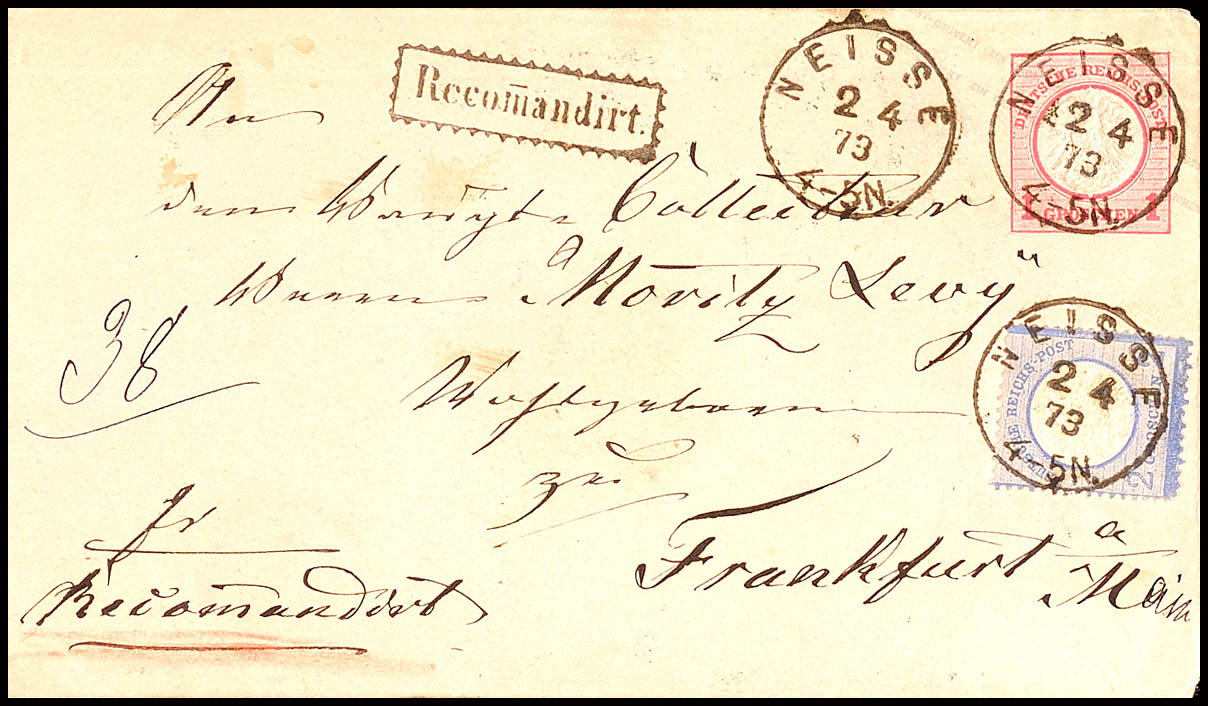 Recom̄andirt.
NEISSE
2 4
73
4-5N.
NEISSE
2 4
73
4-5N.
DEUTSCHE REICHS-POST
1 GROSCHEN 1
An
den Collecteur
Herrn „Moritz Levy"
38
NEISSE
2 4
73
4-5N.
REICHS-POST
2 GROSCHEN
Wohlgeboren
zu
fr
Recom̄andirt
Frankfurt a
Main